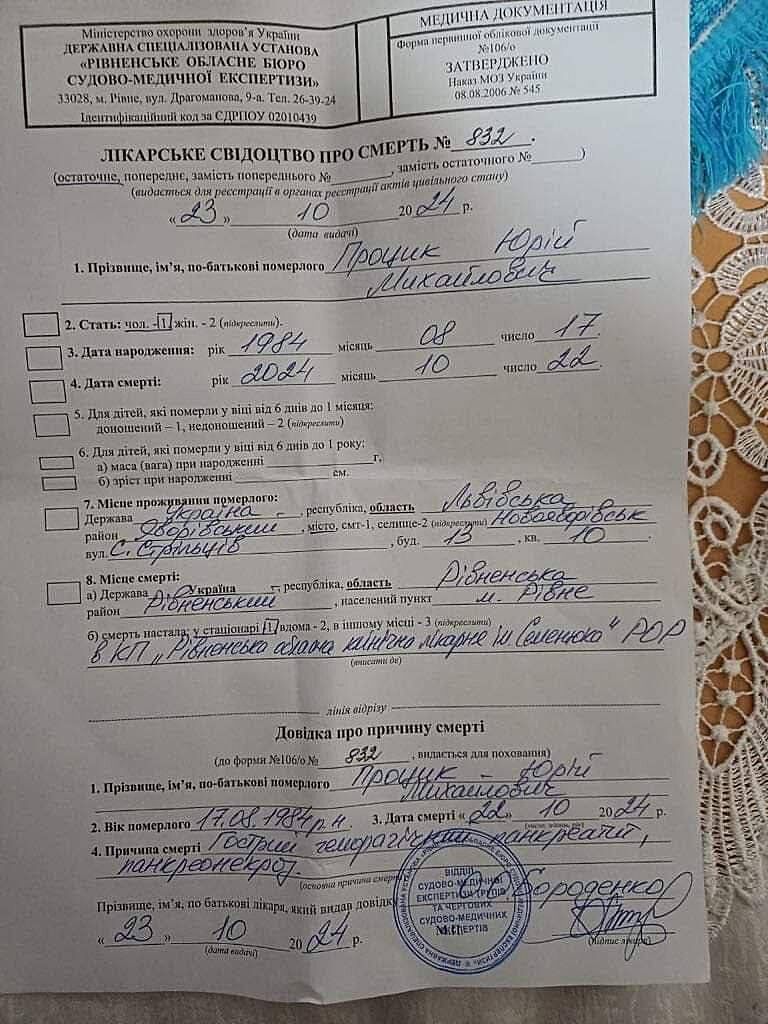 Міністерство охорони здоров'я України
ДЕРЖАВНА СПЕЦІАЛІЗОВАНА УСТАНОВА
«РІВНЕНСЬКЕ ОБЛАСНЕ БЮРО
СУДОВО-МЕДИЧНОЇ ЕКСПЕРТИЗИ»
33028, м. Рівне, вул. Драгоманова, 9-а. Тел. 26-39-24
Ідентифікаційний код за ЄДРПОУ 02010439
МЕДИЧНА ДОКУМЕНТАЦІЯ
Форма первинної облікової документації
№106/о
ЗАТВЕРДЖЕНО
Наказ МОЗ України
08.08.2006 № 545
ЛІКАРСЬКЕ СВІДОЦТВО ПРО СМЕРТЬ № 832.
(остаточне, попереднє, замість попереднього №______, замість остаточного №______)
(видається для реєстрації в органах реєстрації актів цивільного стану)
«23» 10 2024 р.
(дата видачі)
1. Прізвище, ім'я, по-батькові померлого Процик Юрій
Михайлович
2. Стать: чол. -1, жін. - 2 (підкреслити).
3. Дата народження: рік 1984 місяць 08 число 17.
4. Дата смерті: рік 2024 місяць 10 число 22.
5. Для дітей, які померли у віці від 6 днів до 1 місяця:
доношений – 1, недоношений – 2 (підкреслити)
6. Для дітей, які померли у віці від 6 днів до 1 року:
а) маса (вага) при народженні ______ г,
б) зріст при народженні ______ см.
7. Місце проживання померлого:
Держава Україна -, республіка, область Львівська
район Яворівський, місто, смт-1, селище-2 (підкреслити) Новояворівськ
вул. С. Стрільців, буд. 13, кв. 10.
8. Місце смерті:
а) Держава Україна -, республіка, область Рівненська
район Рівненський, населений пункт м. Рівне
б) смерть настала: у стаціонарі 1, вдома - 2, в іншому місці - 3 (підкреслити)
в КП „Рівненська обласна клінічна лікарне ім. Семенюка" РОР
(вписати де)
лінія відрізу
Довідка про причину смерті
(до форми №106/о № 832, видається для поховання)
1. Прізвище, ім'я, по-батькові померлого Процик - Юрій
Михайлович
2. Вік померлого 17.08.1984 р.н. 3. Дата смерті «22» 10 2024 р.
4. Причина смерті Гострий геморагічний панкреатит,
панкреонекроз.
(основна причина смерті)
Прізвище, ім'я, по батькові лікаря, який видав довідку Бороденко
«23» 10 2024 р.
(дата видачі)
(підпис лікаря)
ВІДДІЛ
СУДОВО-МЕДИЧНОЇ
ЕКСПЕРТИЗИ ТРУПІВ
ТА ЧЕРГОВИХ
СУДОВО-МЕДИЧНИХ
ЕКСПЕРТІВ